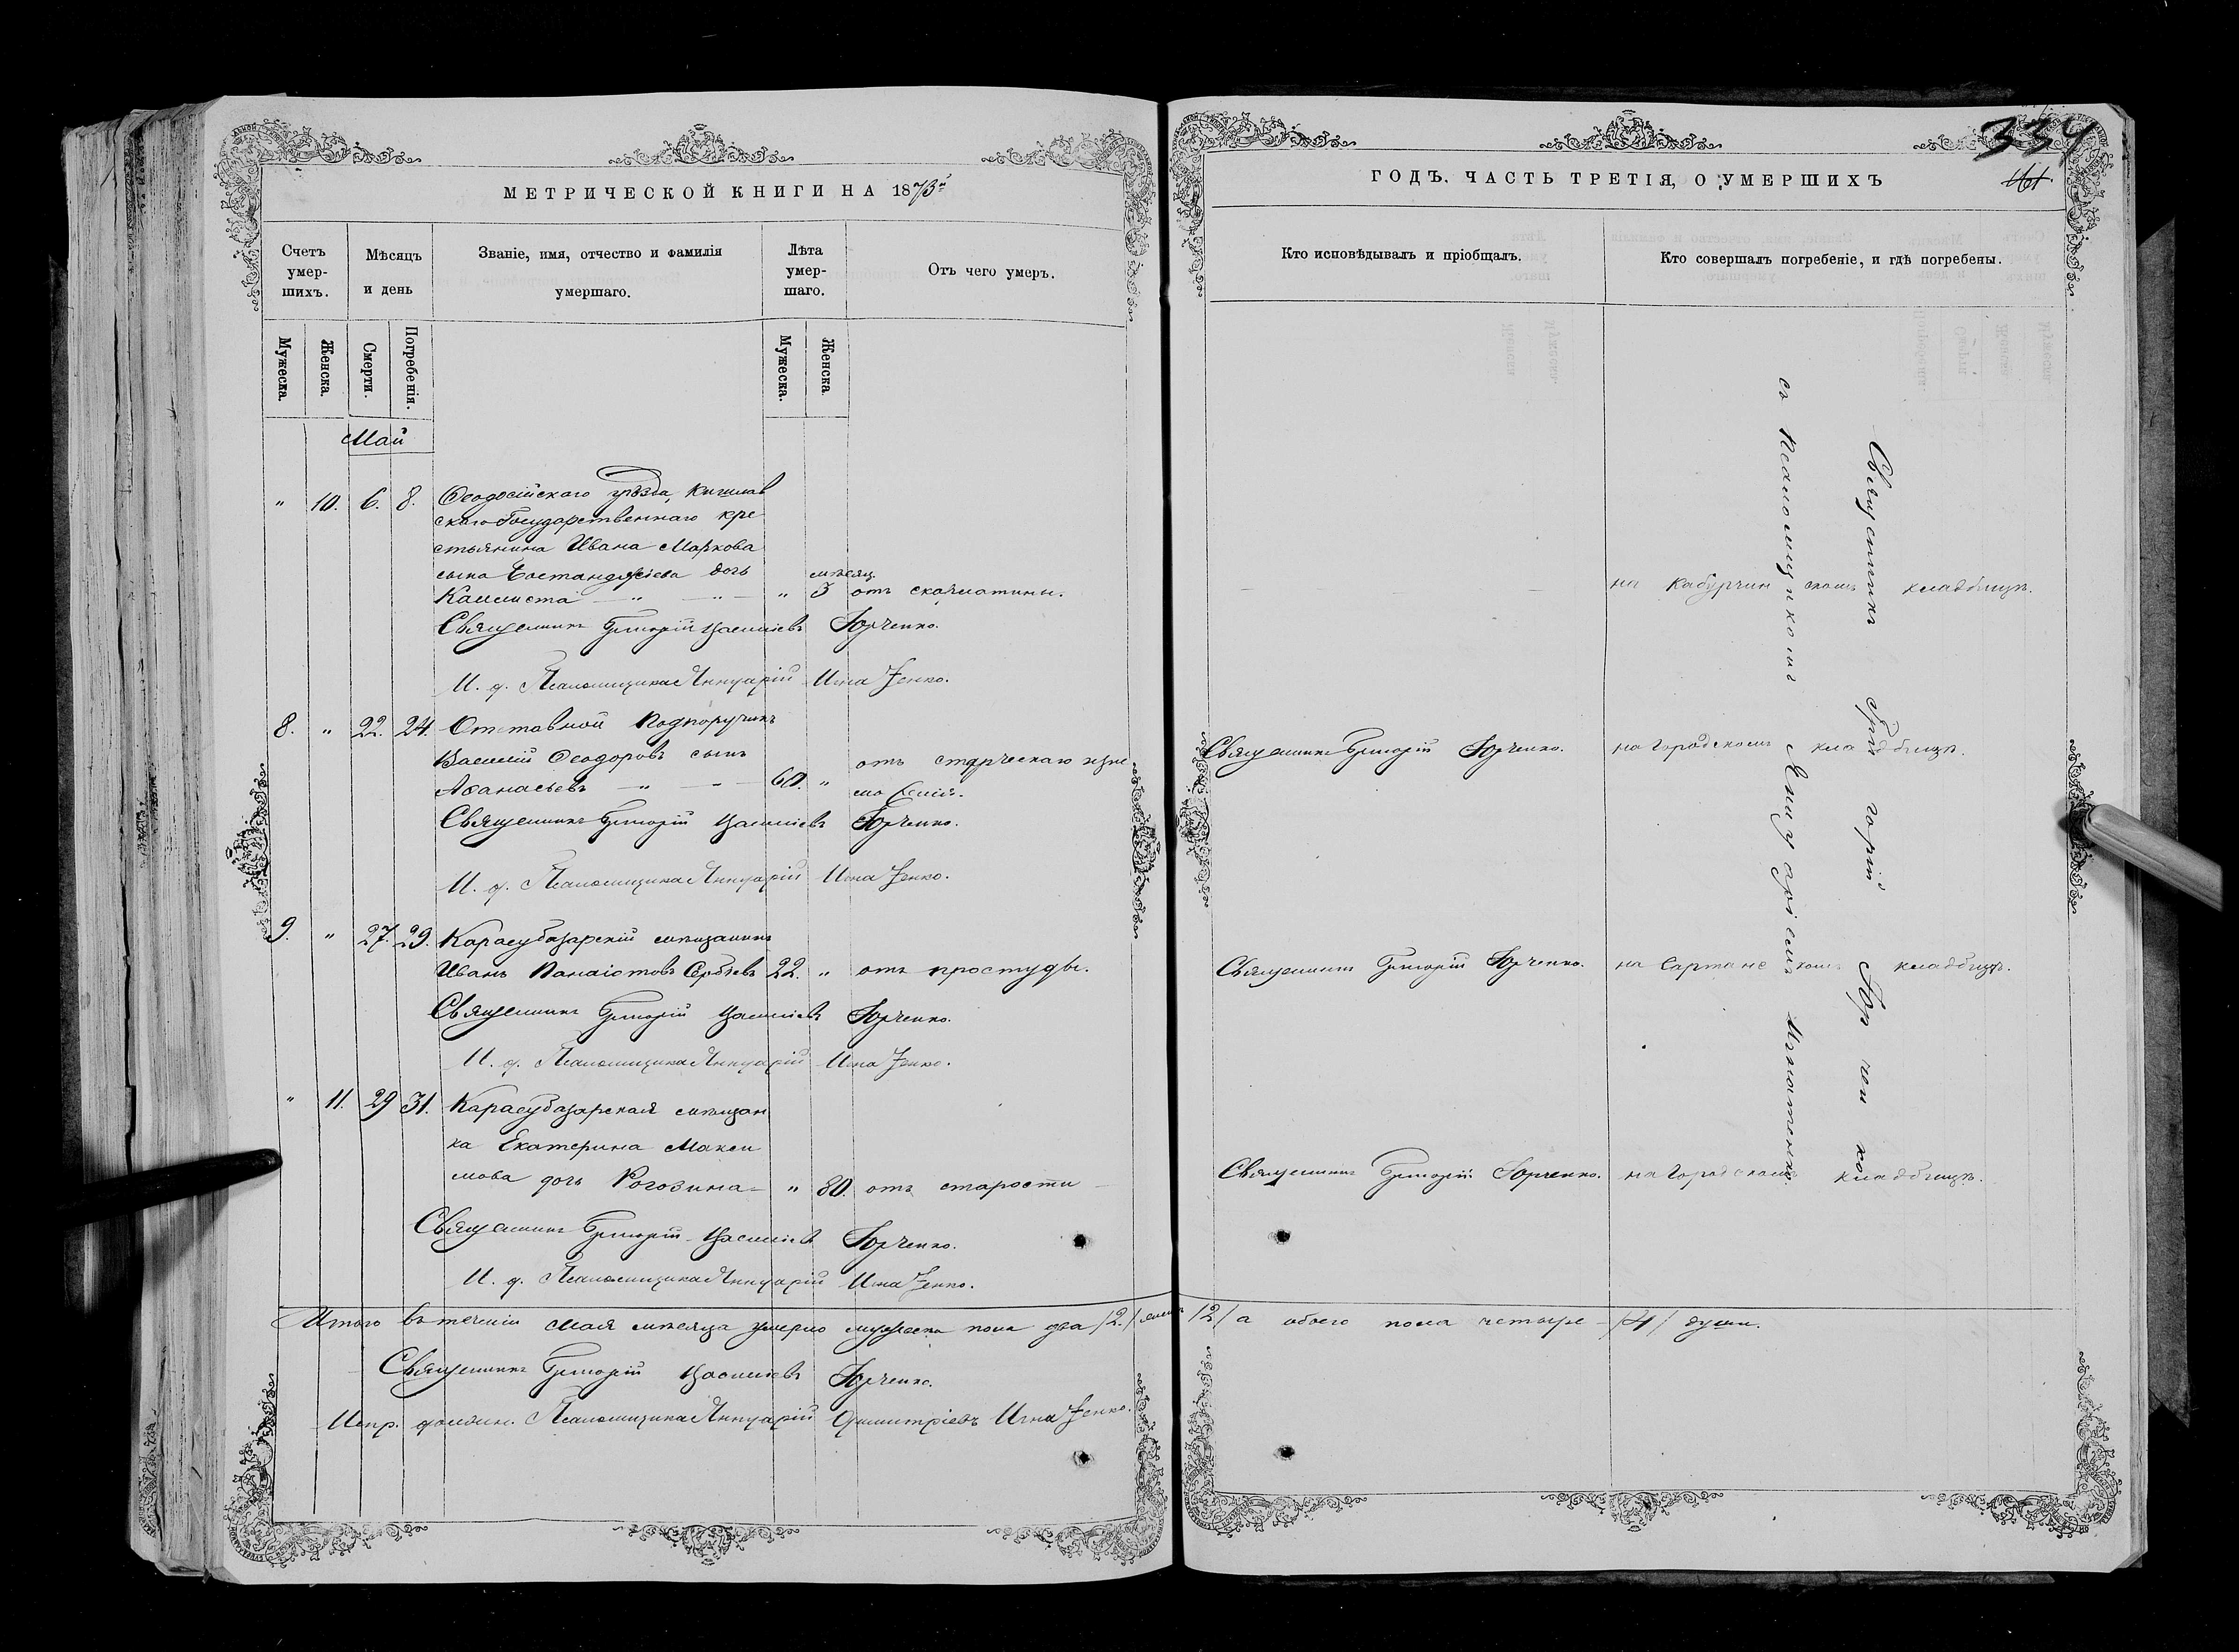 МЕТРИЧЕСКОЙ КНИГИ НА 1873й
Счетъ умер-шихъ.
Мѣсяцъ и день
Званіе, имя, отчество и фамилія умершаго.
Лѣта умер-шаго.
Отъ чего умеръ.
Мужеска.
Женска.
Смерти.
Погребенія.
Мужеска.
Женска.
Май
" 10. 6. 8. Ѳеодосійскаго уѣзда,
скаго Государственнаго кре
стьянина Ивана Маркова
сына дочь мѣсяц.
Каллиста — " — " — " 3 отъ скарлатины.
Священникъ Григорій Василіевъ Юрченко.
И. д. Псаломщика Яннуарій Игнатенко.
8. " 22. 24. Отставной Подпоручикъ
Василій Ѳеодоровъ сынъ отъ старческаго изне
Аѳанасьевъ — " — 60. " моженія.
Священникъ Григорій Василіевъ Юрченко.
И. д. Псаломщика Яннуарій Игнатенко.
9. " 27. 29. Карасубазарскій мѣщанинъ
Иванъ Панаіотовъ Сербіевъ 22. " отъ простуды.
Священникъ Григорій Василіевъ Юрченко.
И. д. Псаломщика Яннуарій Игнатенко.
" 11. 29 31. Карасубазарская мѣщан
ка Екатерина Макси
мова дочь Рогозина — " 80. отъ старости —
Священникъ Григорій Василіевъ Юрченко.
И. д. Псаломщика Яннуарій Игнатенко.
Итого въ теченіи Мая мѣсяца умерло мужеска пола два /2./ женск /2/ а обоего пола четыре — /4/ души.
Священникъ Григорій Василіевъ Юрченко.
Испр. должн. Псаломщика Яннуарій Димитріевъ Игнатенко.
334
161.
ГОДЪ. ЧАСТЬ ТРЕТІЯ, О УМЕРШИХЪ
Кто исповѣдывалъ и пріобщалъ.
Кто совершалъ погребеніе, и гдѣ погребены.
— — на Кабурчинскомъ кладбищѣ.
Священникъ Григорій Юрченко. на Городскомъ кладбищѣ.
Священникъ Григорій Юрченко. на Сартанскомъ кладбищѣ.
Священникъ Григорій Юрченко. на Городскомъ кладбищѣ.
Священникъ Григорій Юрченко
съ Псаломщикомъ Яннуаріемъ Игнатенко.